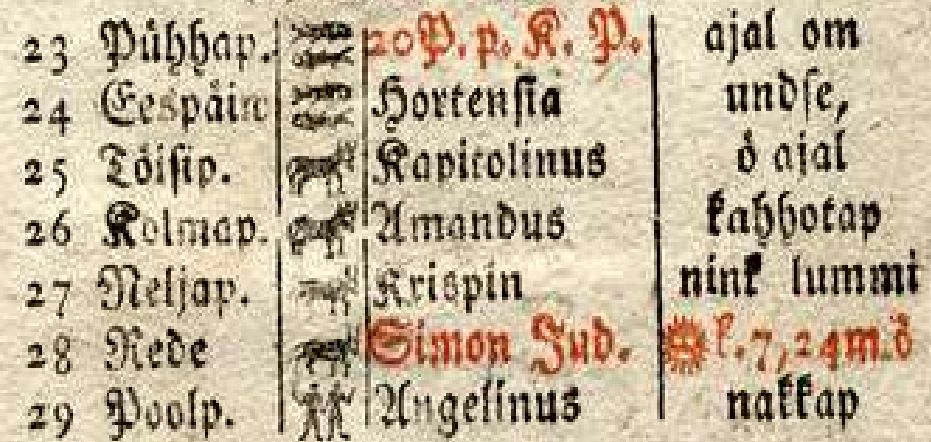 23 Pühhap. 20 P. p. K. P. ajal om
24 Eespäin Hortensia undse,
25 Töisip. Kapitolinus ö ajal
26 Kolmap. Amandus kahhotap
27 Neljap. Krispin nink lummi
28 Rede Simon Jud. k. 7, 24 m. ö
29 Poolp. Angelinus nakkap